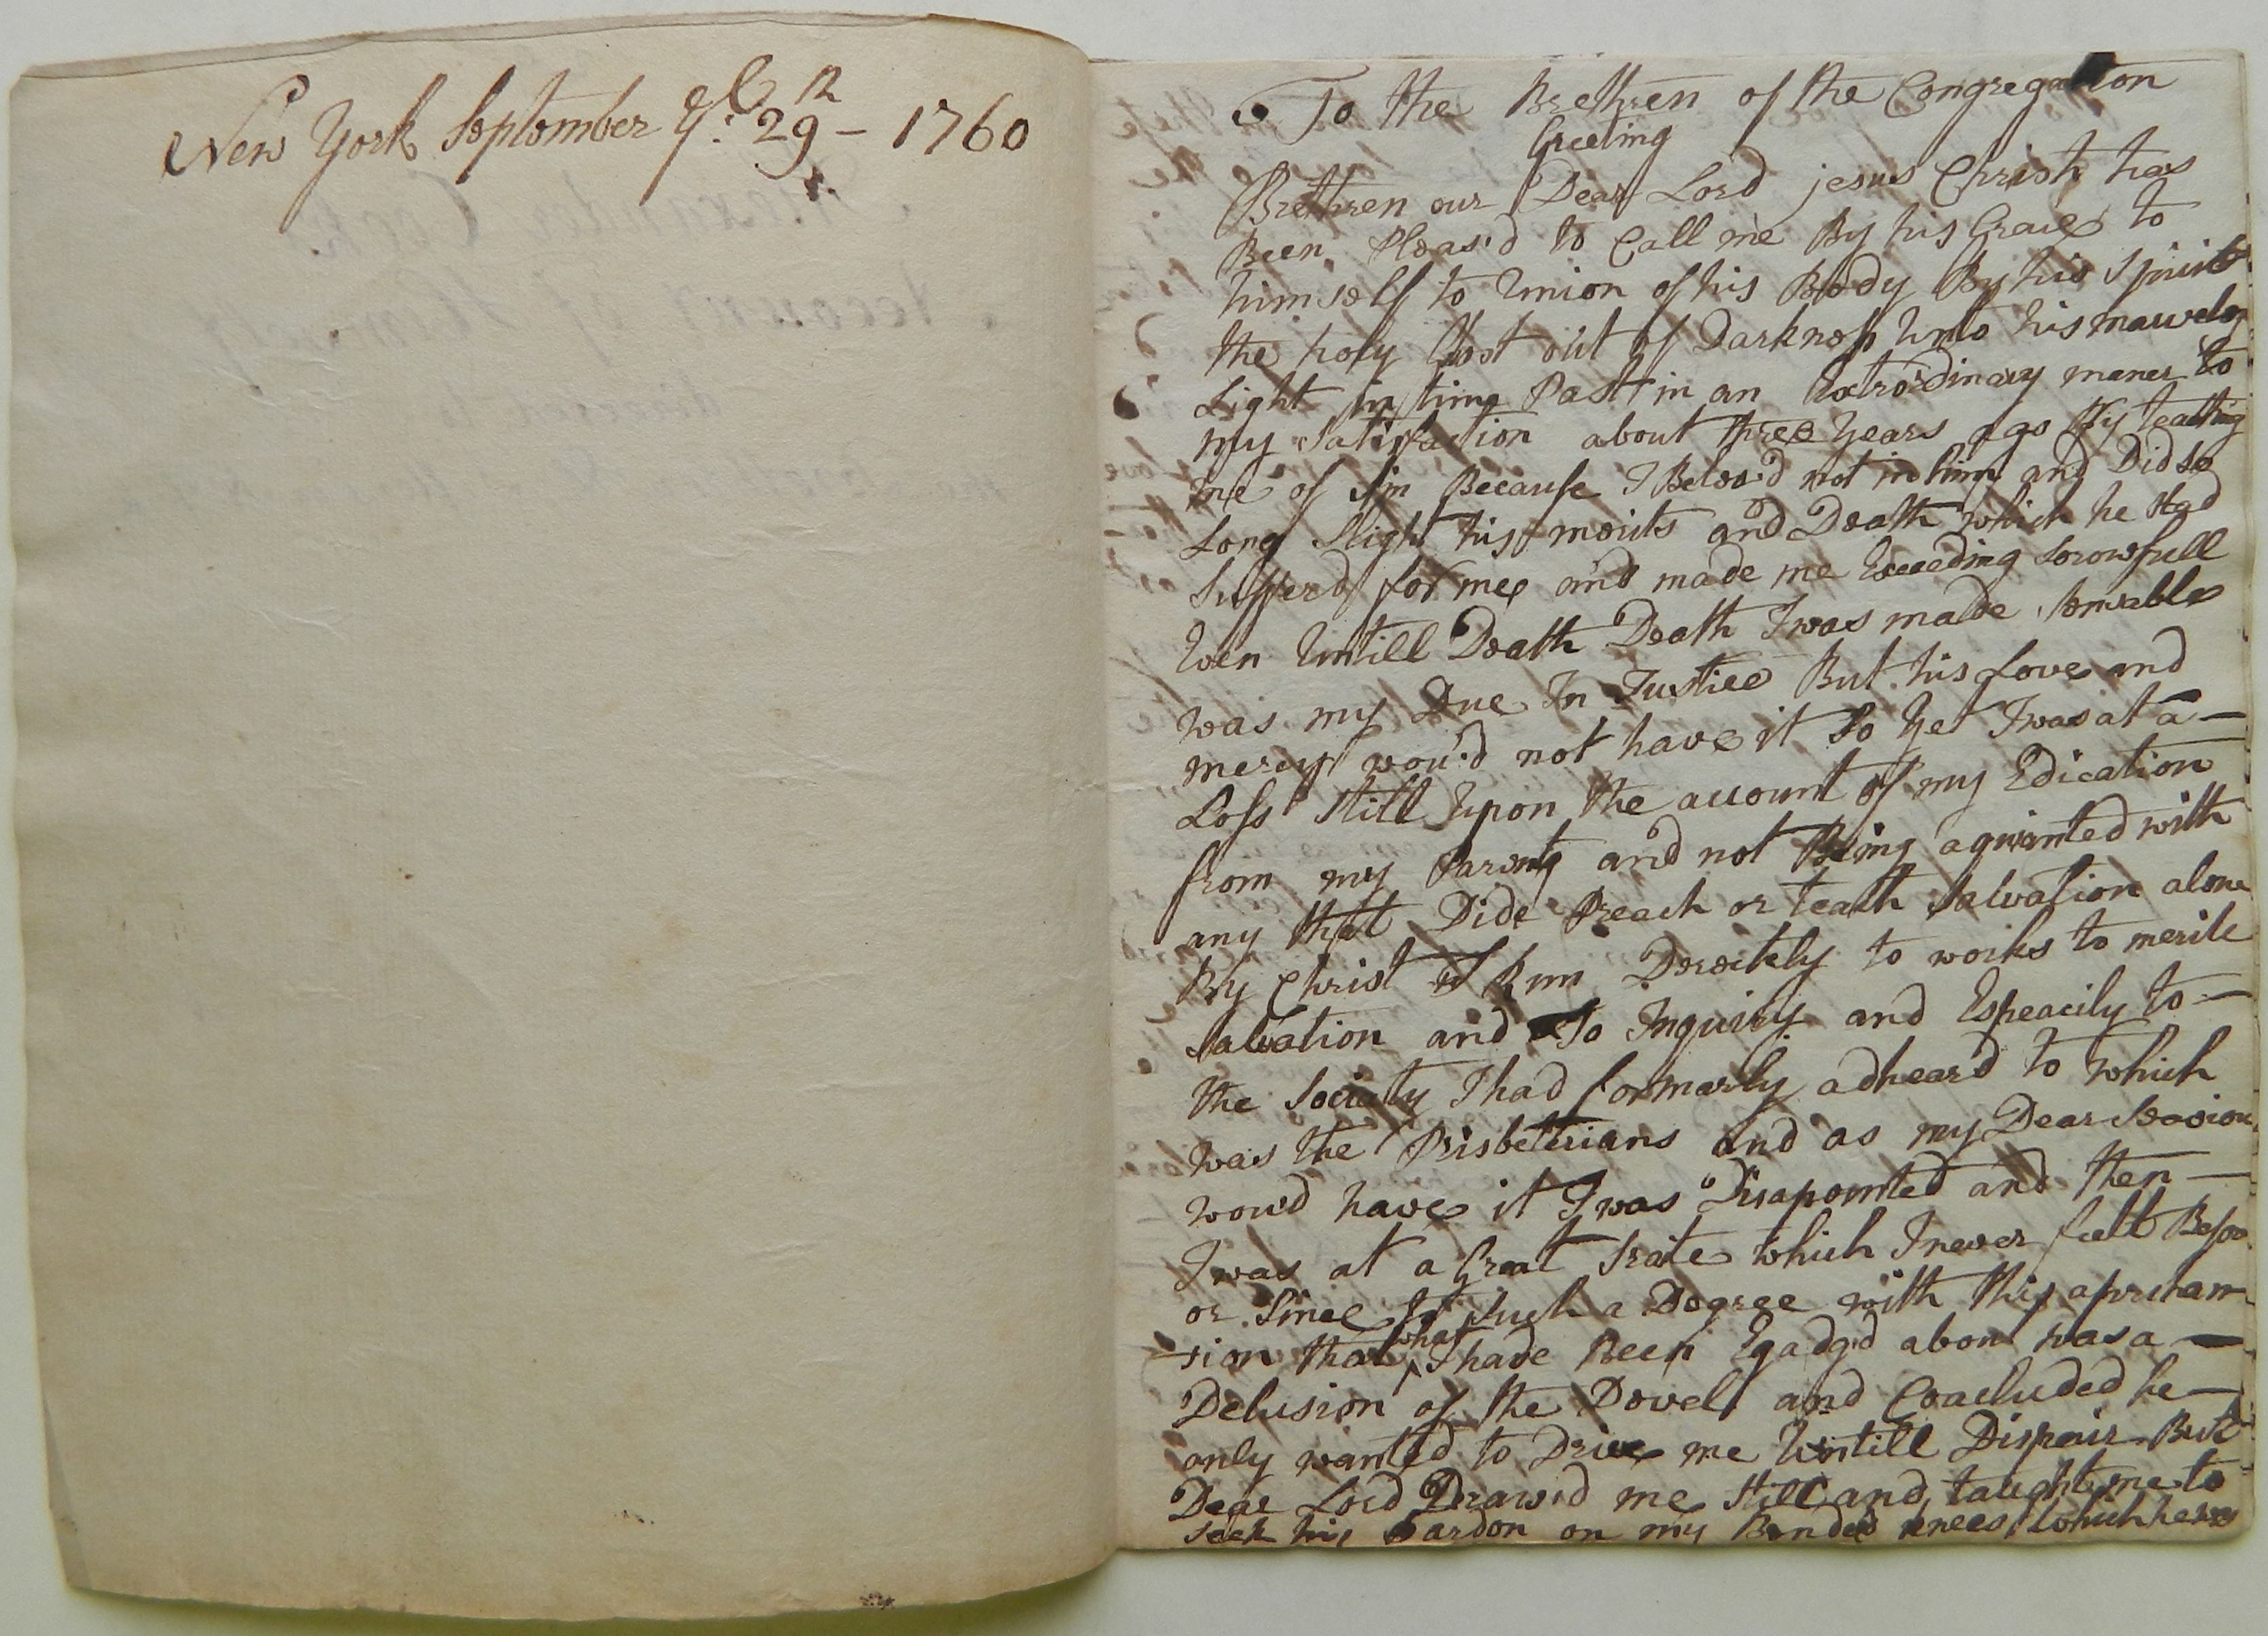 New York September ye 29th - 1760
To the Brethren of the Congregation
Greeting
Brethren our Dear Lord jesus Christ has
Been Pleas'd to Call me By his Grace to
himself to Union of his Body By his Spirit
the holy Gost out of Darkness Unto his marvelos
Light in time Past in an Extrordinary maner to
my Satisfaction about three Years ago By teathing
me of Sin Because I Belev'd not in him and Did so
Long Slight his merits and Death which he Had
Sufferd for me and made me Exceeding Sorowfull
Even Untill Death Death I was made Sensable
was my Due In Justice But his Love and
mercy wou'd not have it So Yet I was at a —
Loss Still Upon the account of my Edication
from my Parents and not Being aquainted with
any that Dide Preach or teach Salvation alone
By Christ I Run Derectely to works to merite
Salvation and To Inquirey and Espeacily to —
the Society I had formarly adheard to which
was the Prisbeterians and as my Dear
woud have it I was Disapointed and then —
I was at a Great Strate which I never felt Befor
or Since to Such a Degree with this aprehan
-sion that what I have Been Egadg'd abou was a —
Delusion of the Devel and Concluded he —
only wanted to Drive me Untill Dispair But
Dear Lord Draw'd me Still and taught me to
seek his Pardon on my Bended knees which he